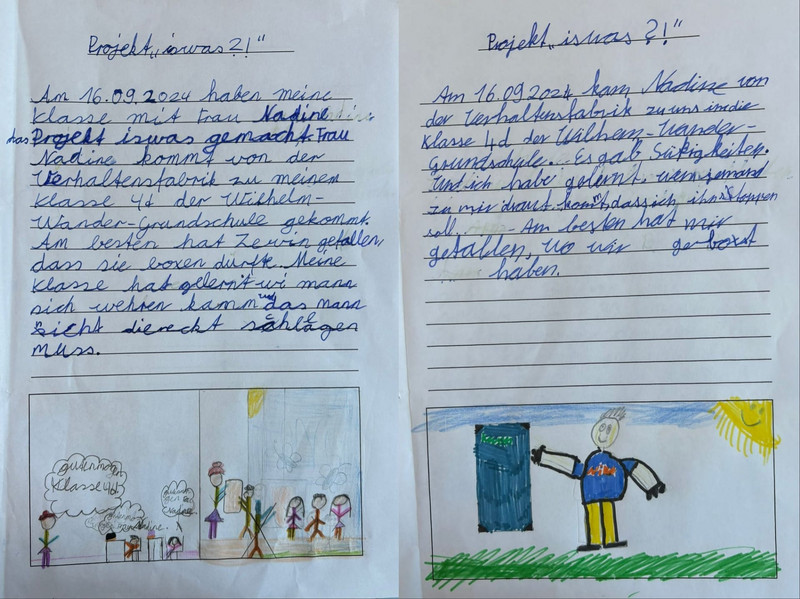 Projekt „iswas?!"
Am 16.09.2024 haben meine
Klasse mit Frau Nadine
das Projekt iswas gemacht. Frau
Nadine kommt von der
Verhaltensfabrik zu meinem
Klasse 4d der Wilhelm-
Wander-Grundschule gekommt.
Am besten hat Zewin gefallen,
dass sie boxen durfte. Meine
Klasse hat gelernt wi mann
sich wehren kamm und das mann
nicht diereckt schlagen
muss.
gutenmorgen
Klasse 4d
Projekt „iswas?!"
Am 16.09.2024 kam Nadine von
der Verhaltensfabrik zu uns in die
Klasse 4d der Wilhelm-Wander-
Grundschule. Es gab Süßigkeiten.
Und ich habe gelernt, wenn jemand
zu mir draut kommt dass ich ihn stoppen
soll. Am besten hat mir
gefallen, wo wir geboxt
haben.